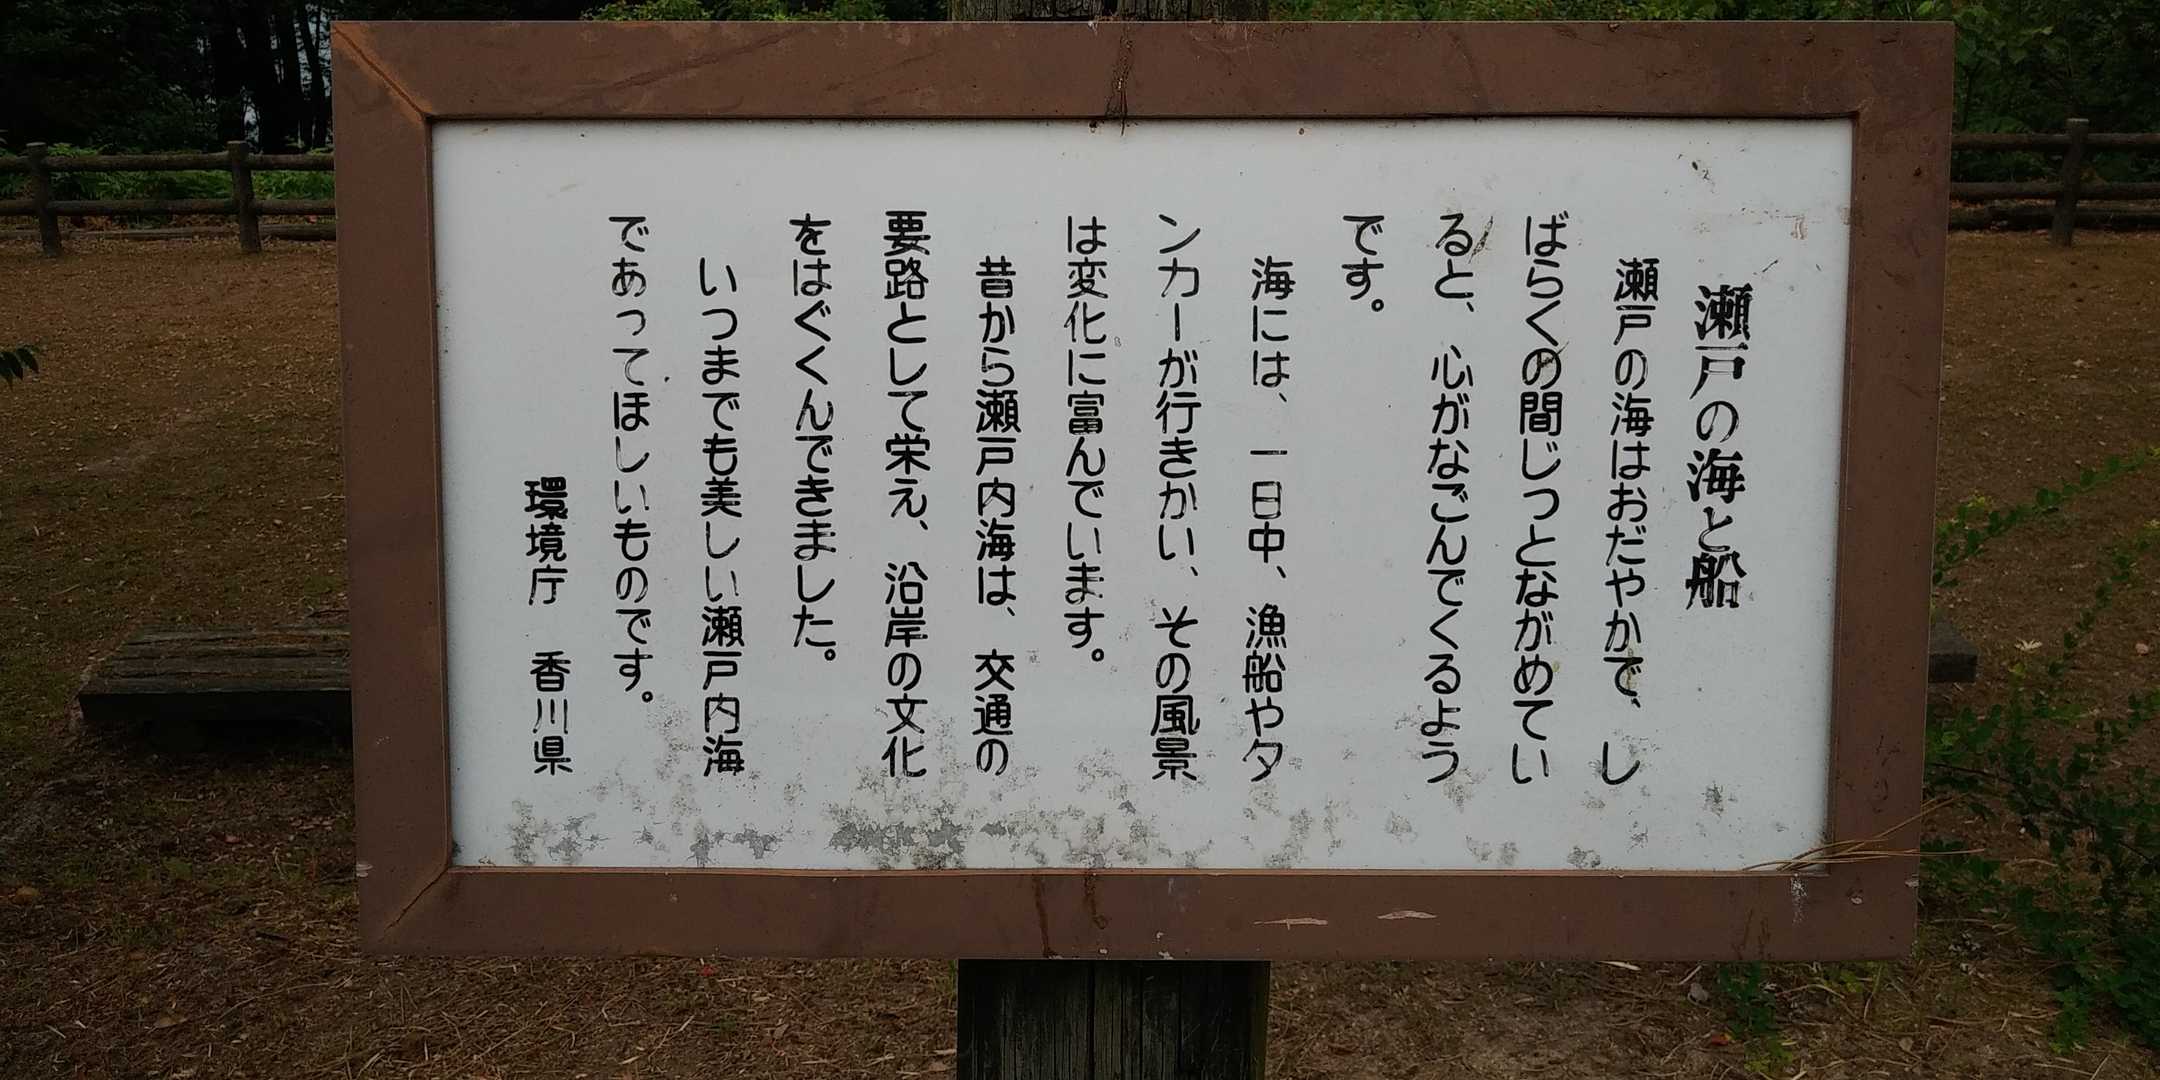 瀬戸の海と船
瀬戸の海はおだやかで、し
ばらくの間じっとながめてい
ると、心がなごんでくるよう
です。
海には、一日中、漁船やタ
ンカーが行きかい、その風景
は変化に富んでいます。
昔から瀬戸内海は、交通の
要路として栄え、沿岸の文化
をはぐくんできました。
いつまでも美しい瀬戸内海
であってほしいものです。
環境庁　香川県